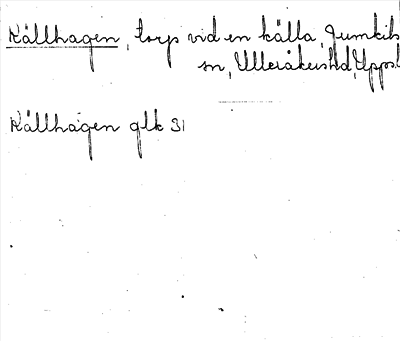 Källhagen, torp vid en källa, Jumkils
sn, Ulleråkers hd, Uppsl
Källhagen glk 31